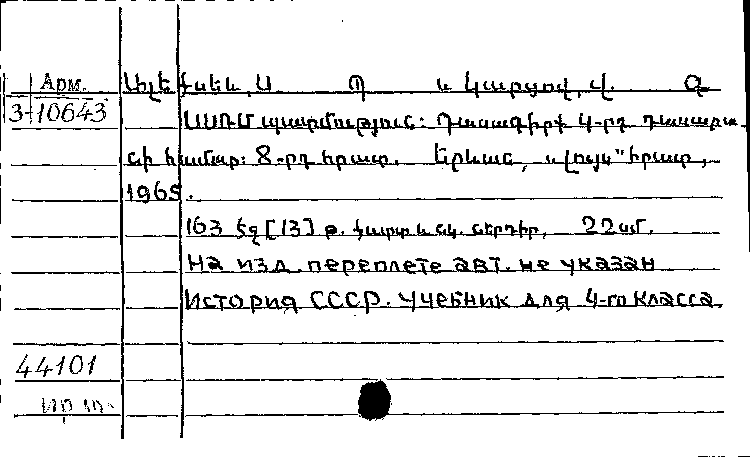 Арм. Ալեքսեև, Ս Պ և Կարցով, Վ. Գ
3-10643 ՍՍՌՄ պատմություն: Դասագիրք 4-րդ դասարա-
նի համար: 8-րդ հրատ. Երևան, «Լույս" հրատ,
1965.
163 էջ [13] թ. քարտ և նկ. ներդիր, 22սմ.
На изд. переплете авт. не указан
История СССР. Учебник для 4-го класса.
44101